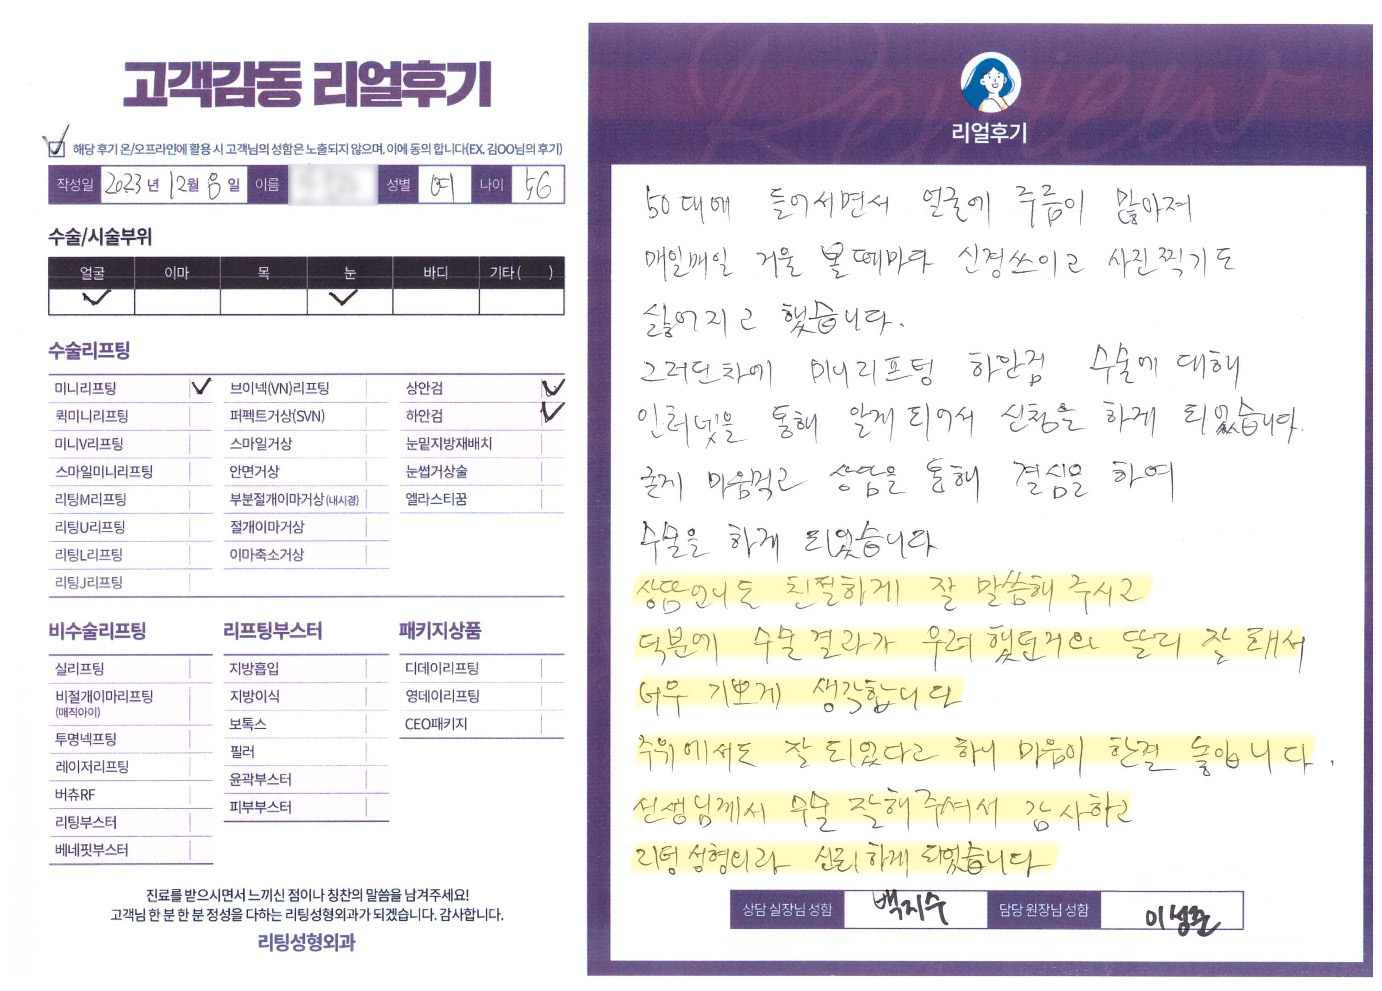 고객감동 리얼후기
해당 후기 온/오프라인에 활용 시 고객님의 성함은 노출되지 않으며, 이에 동의 합니다(EX. 김OO님의 후기)
작성일 2023 년 12월 8 일 이름 성별 여 나이 56
수술/시술부위
얼굴 이마 목 눈 바디 기타 ( )
수술리프팅
미니리프팅 브이넥(VN)리프팅 상안검
퀵미니리프팅 퍼펙트거상(SVN) 하안검
미니V리프팅 스마일거상 눈밑지방재배치
스마일미니리프팅 안면거상 눈썹거상술
리팅M리프팅 부분절개이마거상(내시경) 엘라스티꿈
리팅U리프팅 절개이마거상
리팅L리프팅 이마축소거상
리팅J리프팅
비수술리프팅 리프팅부스터 패키지상품
실리프팅 지방흡입 디데이리프팅
비절개이마리프팅 지방이식 영데이리프팅
(매직아이)
보톡스 CEO패키지
투명넥프팅 필러
레이저리프팅 윤곽부스터
버츄RF 피부부스터
리팅부스터
베네핏부스터
진료를 받으시면서 느끼신 점이나 칭찬의 말씀을 남겨주세요!
고객님 한 분 한 분 정성을 다하는 리팅성형외과가 되겠습니다. 감사합니다.
리팅성형외과
Review
리얼후기
50대에 들어서면서 얼굴에 주름이 많아져
매일매일 거울 볼때마다 신경쓰이고 사진찍기도
싫어지고 했습니다.
그러던차에 미니리프팅 하안검 수술에 대해
인터넷을 통해 알게되어서 신청을 하게 되었습니다.
굳게 마음먹고 상담을 통해 결심을 하여
수술을 하게 되었습니다
상담언니도 친절하게 잘 말씀해 주시고
덕분에 수술결과가 우려했던거와 달리 잘 돼서
너무 기쁘게 생각합니다
주위에서도 잘 되었다고 하니 마음이 한결 놓입니다.
선생님께서 수술 잘해주셔서 감사하고
리팅성형외과 신뢰하게 되었습니다
상담 실장님 성함 백지수 담당 원장님 성함 이성준